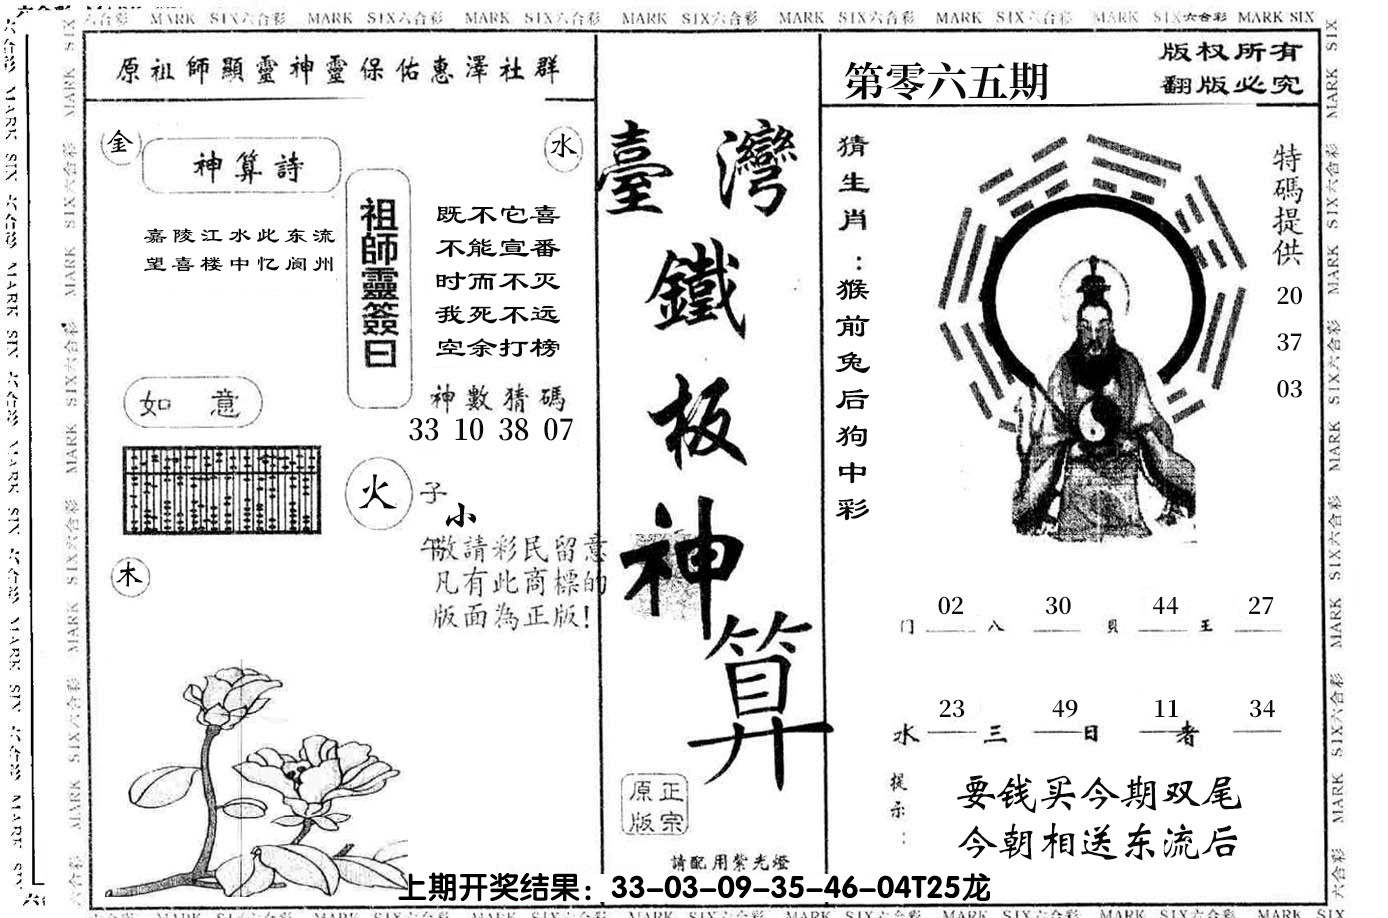 六合彩 MARK SIX六合彩 MARK SIX六合彩 MARK SIX六合彩 MARK SIX六合彩 MARK SIX六合彩 MARK SIX六合彩 MARK SIX六合彩 MARK SIX
原祖師顯靈神靈保佑惠澤社群
金
神算詩
水
嘉陵江水此东流
望喜楼中忆阆州
祖師靈簽曰
既不它喜
不能宣番
时而不灭
我死不远
空余打榜
神數猜碼
33 10 38 07
如 意
火
子
小
午
敬請彩民留意
凡有此商標的
版面為正版!
木
臺灣
鐵
板
神
算
原版
正宗
請配用紫光燈
第零六五期
版权所有
翻版必究
猜生肖:猴前兔后狗中彩
特碼提供
20
37
03
02 30 44 27
门 八 貝 王
23 49 11 34
水 三 日 者
提示:
要钱买今期双尾
今朝相送东流后
上期开奖结果：33-03-09-35-46-04T25龙